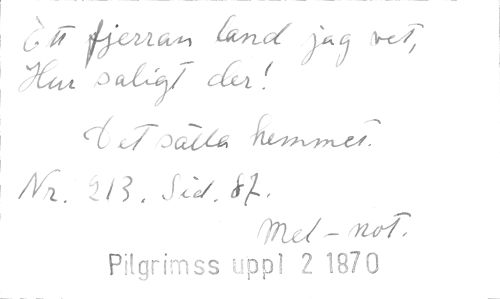 Ett fjerran land jag vet,
Hur saligt der!
Det sälla hemmet.
Nr. 213. Sid. 87.
Mel-not.
Pilgrimss uppl 2 1870